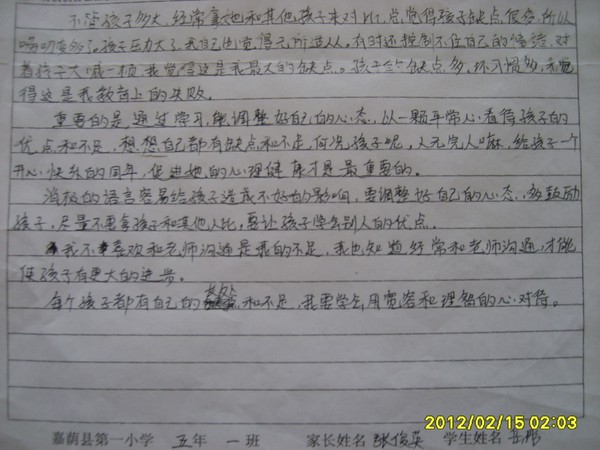 不管孩子多大,经常拿她和其他孩子来对比,总觉得孩子缺点很多,所以
唠叨更多了。孩子压力大了,我自己也觉得无所适从。有时还控制不住自己的情绪,对
着孩子大喊一顿,我觉得这是我最大的缺点。孩子会缺点多,坏习惯多,我觉
得这是我教育上的失败。
重要的是通过学习,能调整好自己的心态,以一颗平常心看待孩子的
优点和不足,想想自己都有缺点和不足,何况孩子呢,人无完人嘛,给孩子一个
开心快乐的周年,促进她的心理健康才是最重要的。
消极的语言容易给孩子造成不好的影响,要调整好自己的心态,多鼓励
孩子,尽量不要拿孩子和其他人比,要让孩子学会别人的优点。
我不喜欢和老师沟通是我的不足,我也知道经常和老师沟通,才能
使孩子有更大的进步。
每个孩子都有自己的长处和不足,我要学会用宽容和理智的心对待。
2012/02/15 02:03
嘉荫县第一小学 五年 一班 家长姓名 张俊英 学生姓名